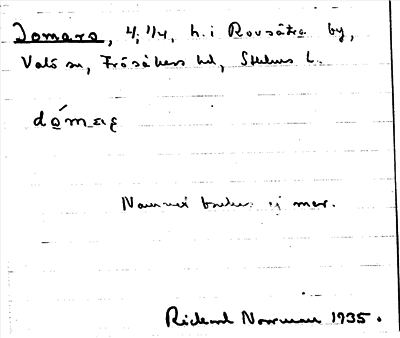 Domars, 4, 1/4, h. i Rovsätra by,
Valö sn, Frösåkers hd, Sthlms l.
dó̱m-aʂ
Namnet brukas ej mer.
Rickard Norrman 1935.